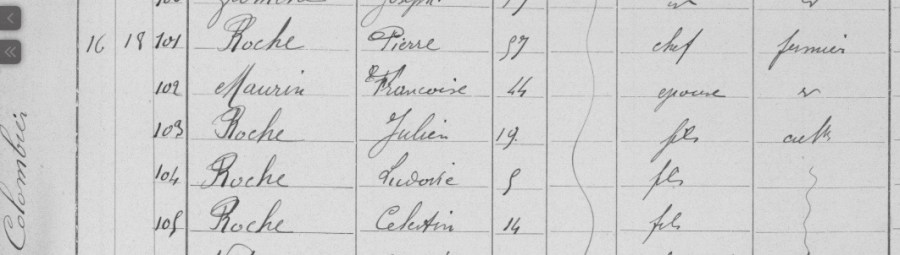 Colombier
16 18 101 Roche Pierre 57 chef fermier
102 Maurin Francoise 44 epouse
103 Roche Julien 19 fils cult
104 Roche Ludovic 5 fils
105 Roche Celestin 14 fils